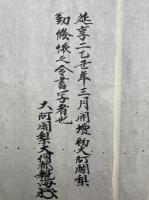 延享二乙丑年三月開壇初大阿闍梨
勤修依之令書写者也
大阿闍梨大僧都親海